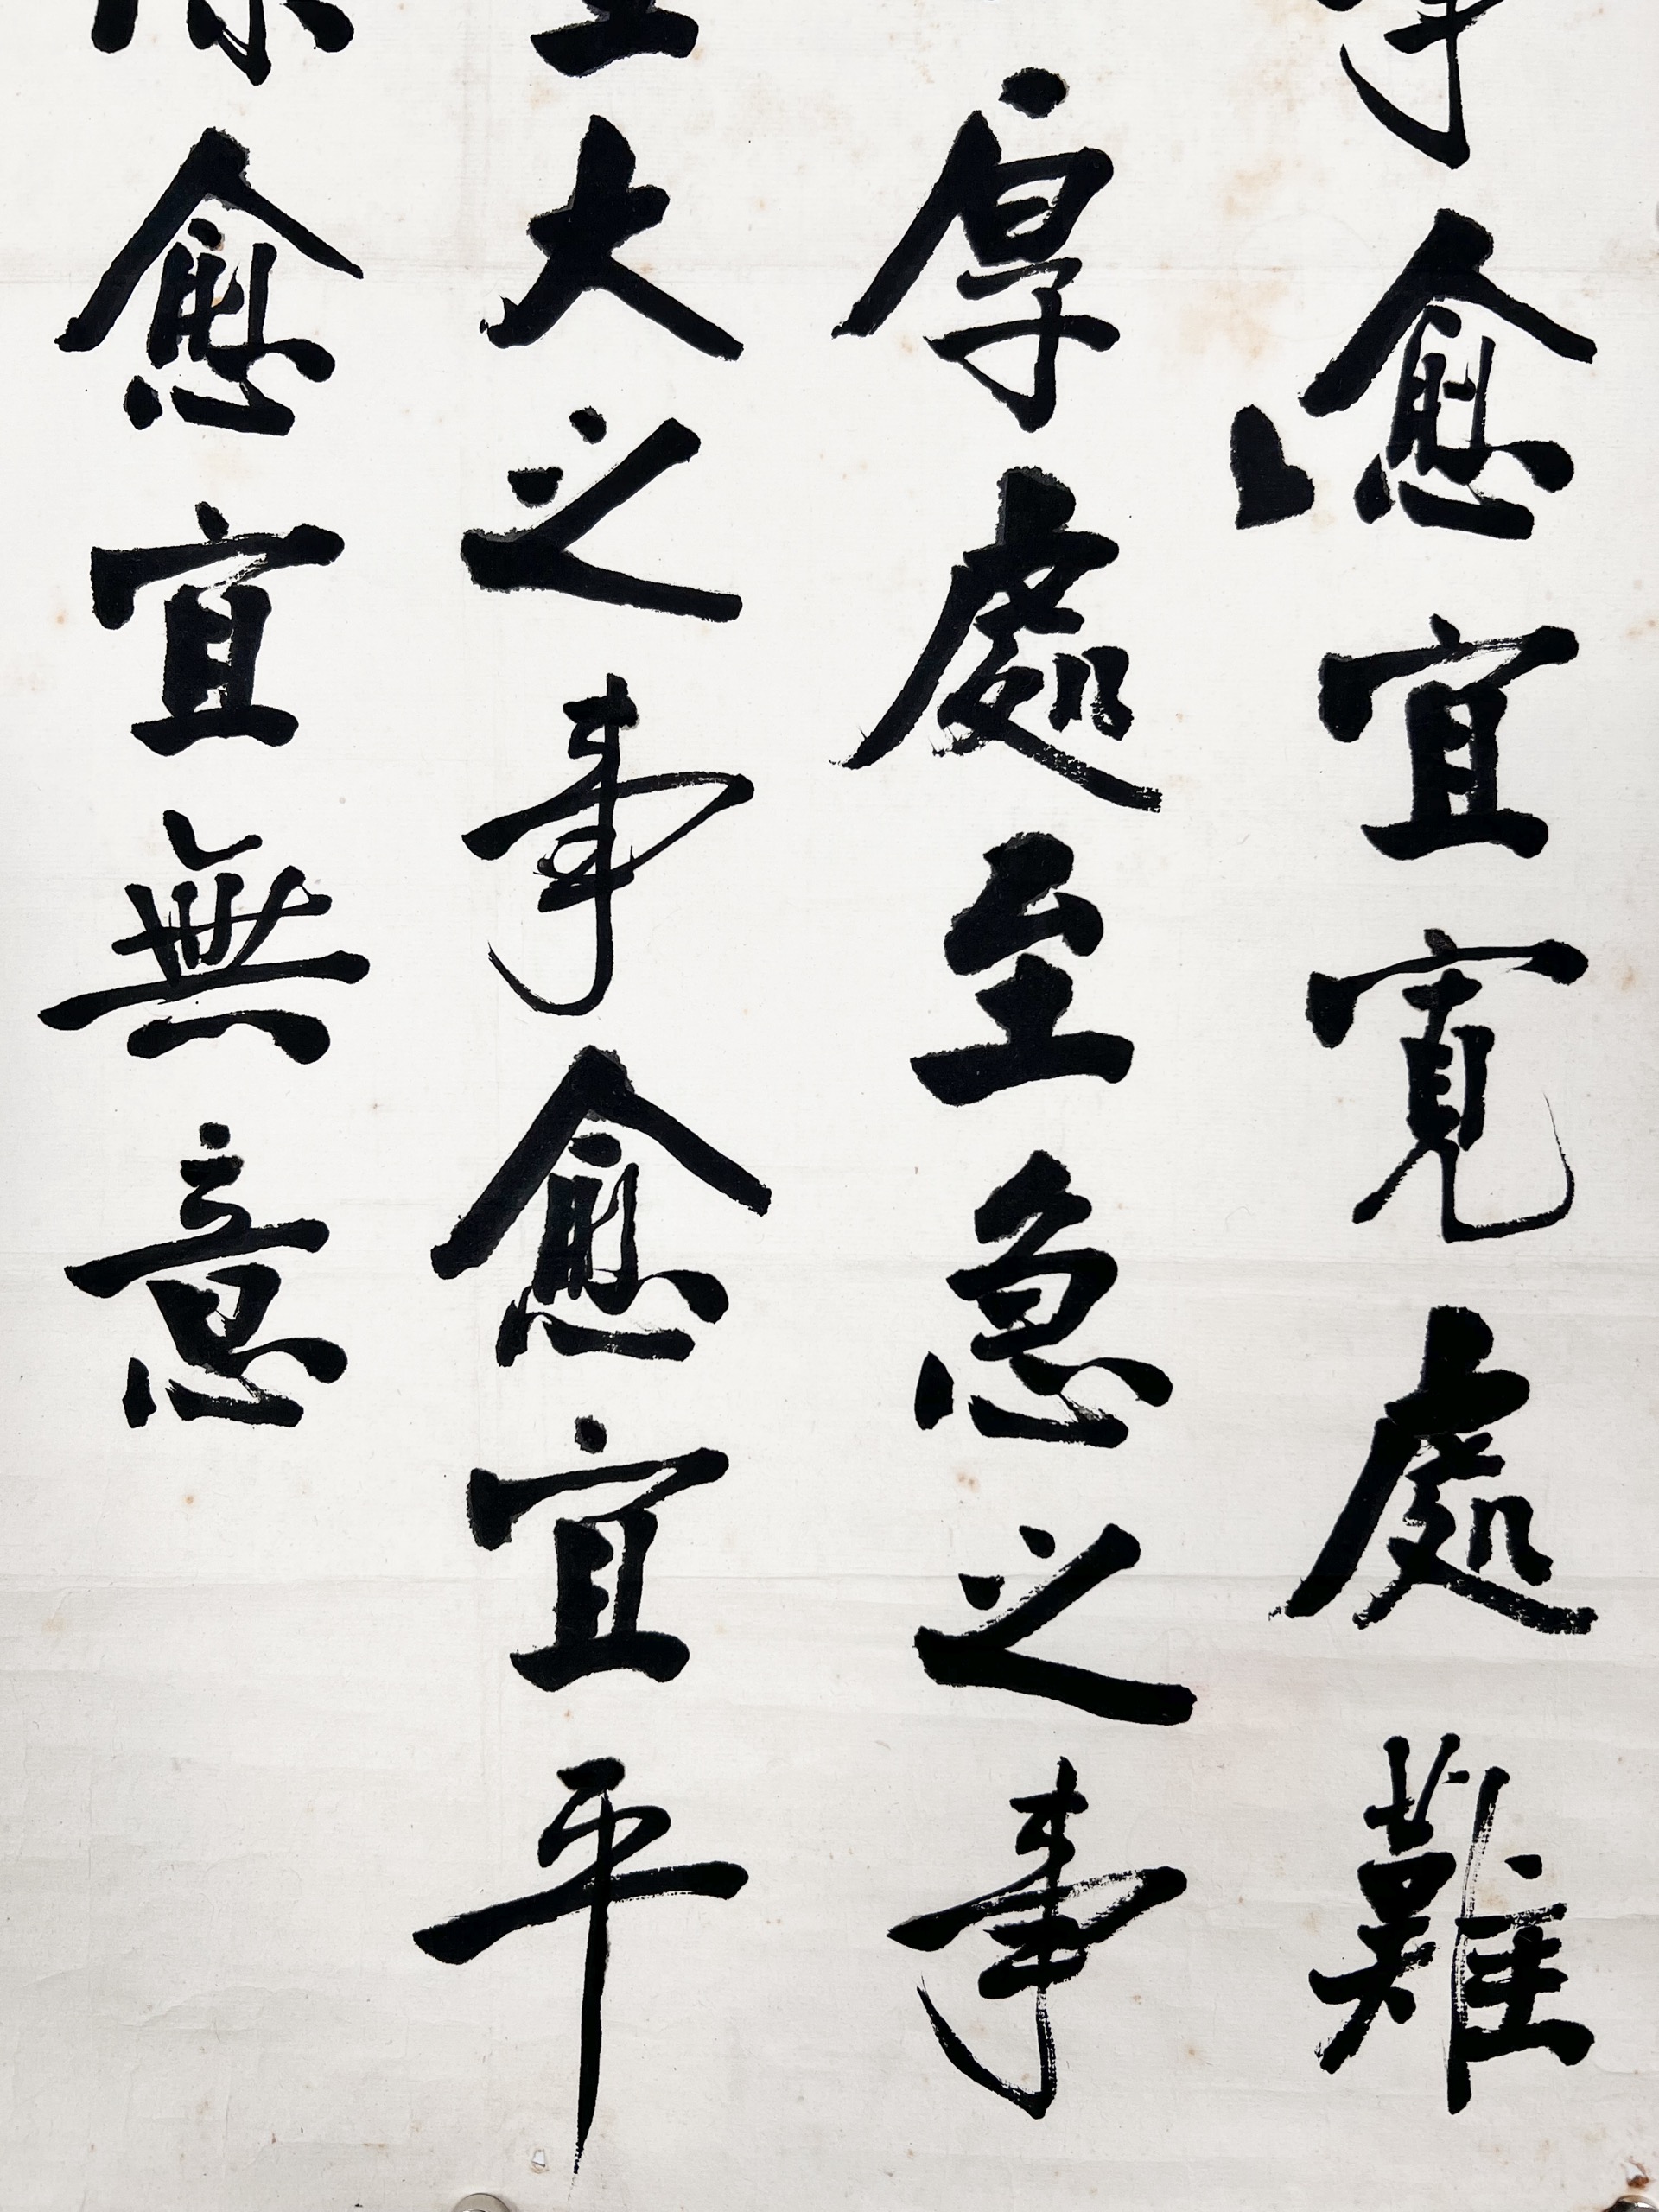 愈宜寬處難
厚處至急之事
大之事愈宜平
愈宜無意